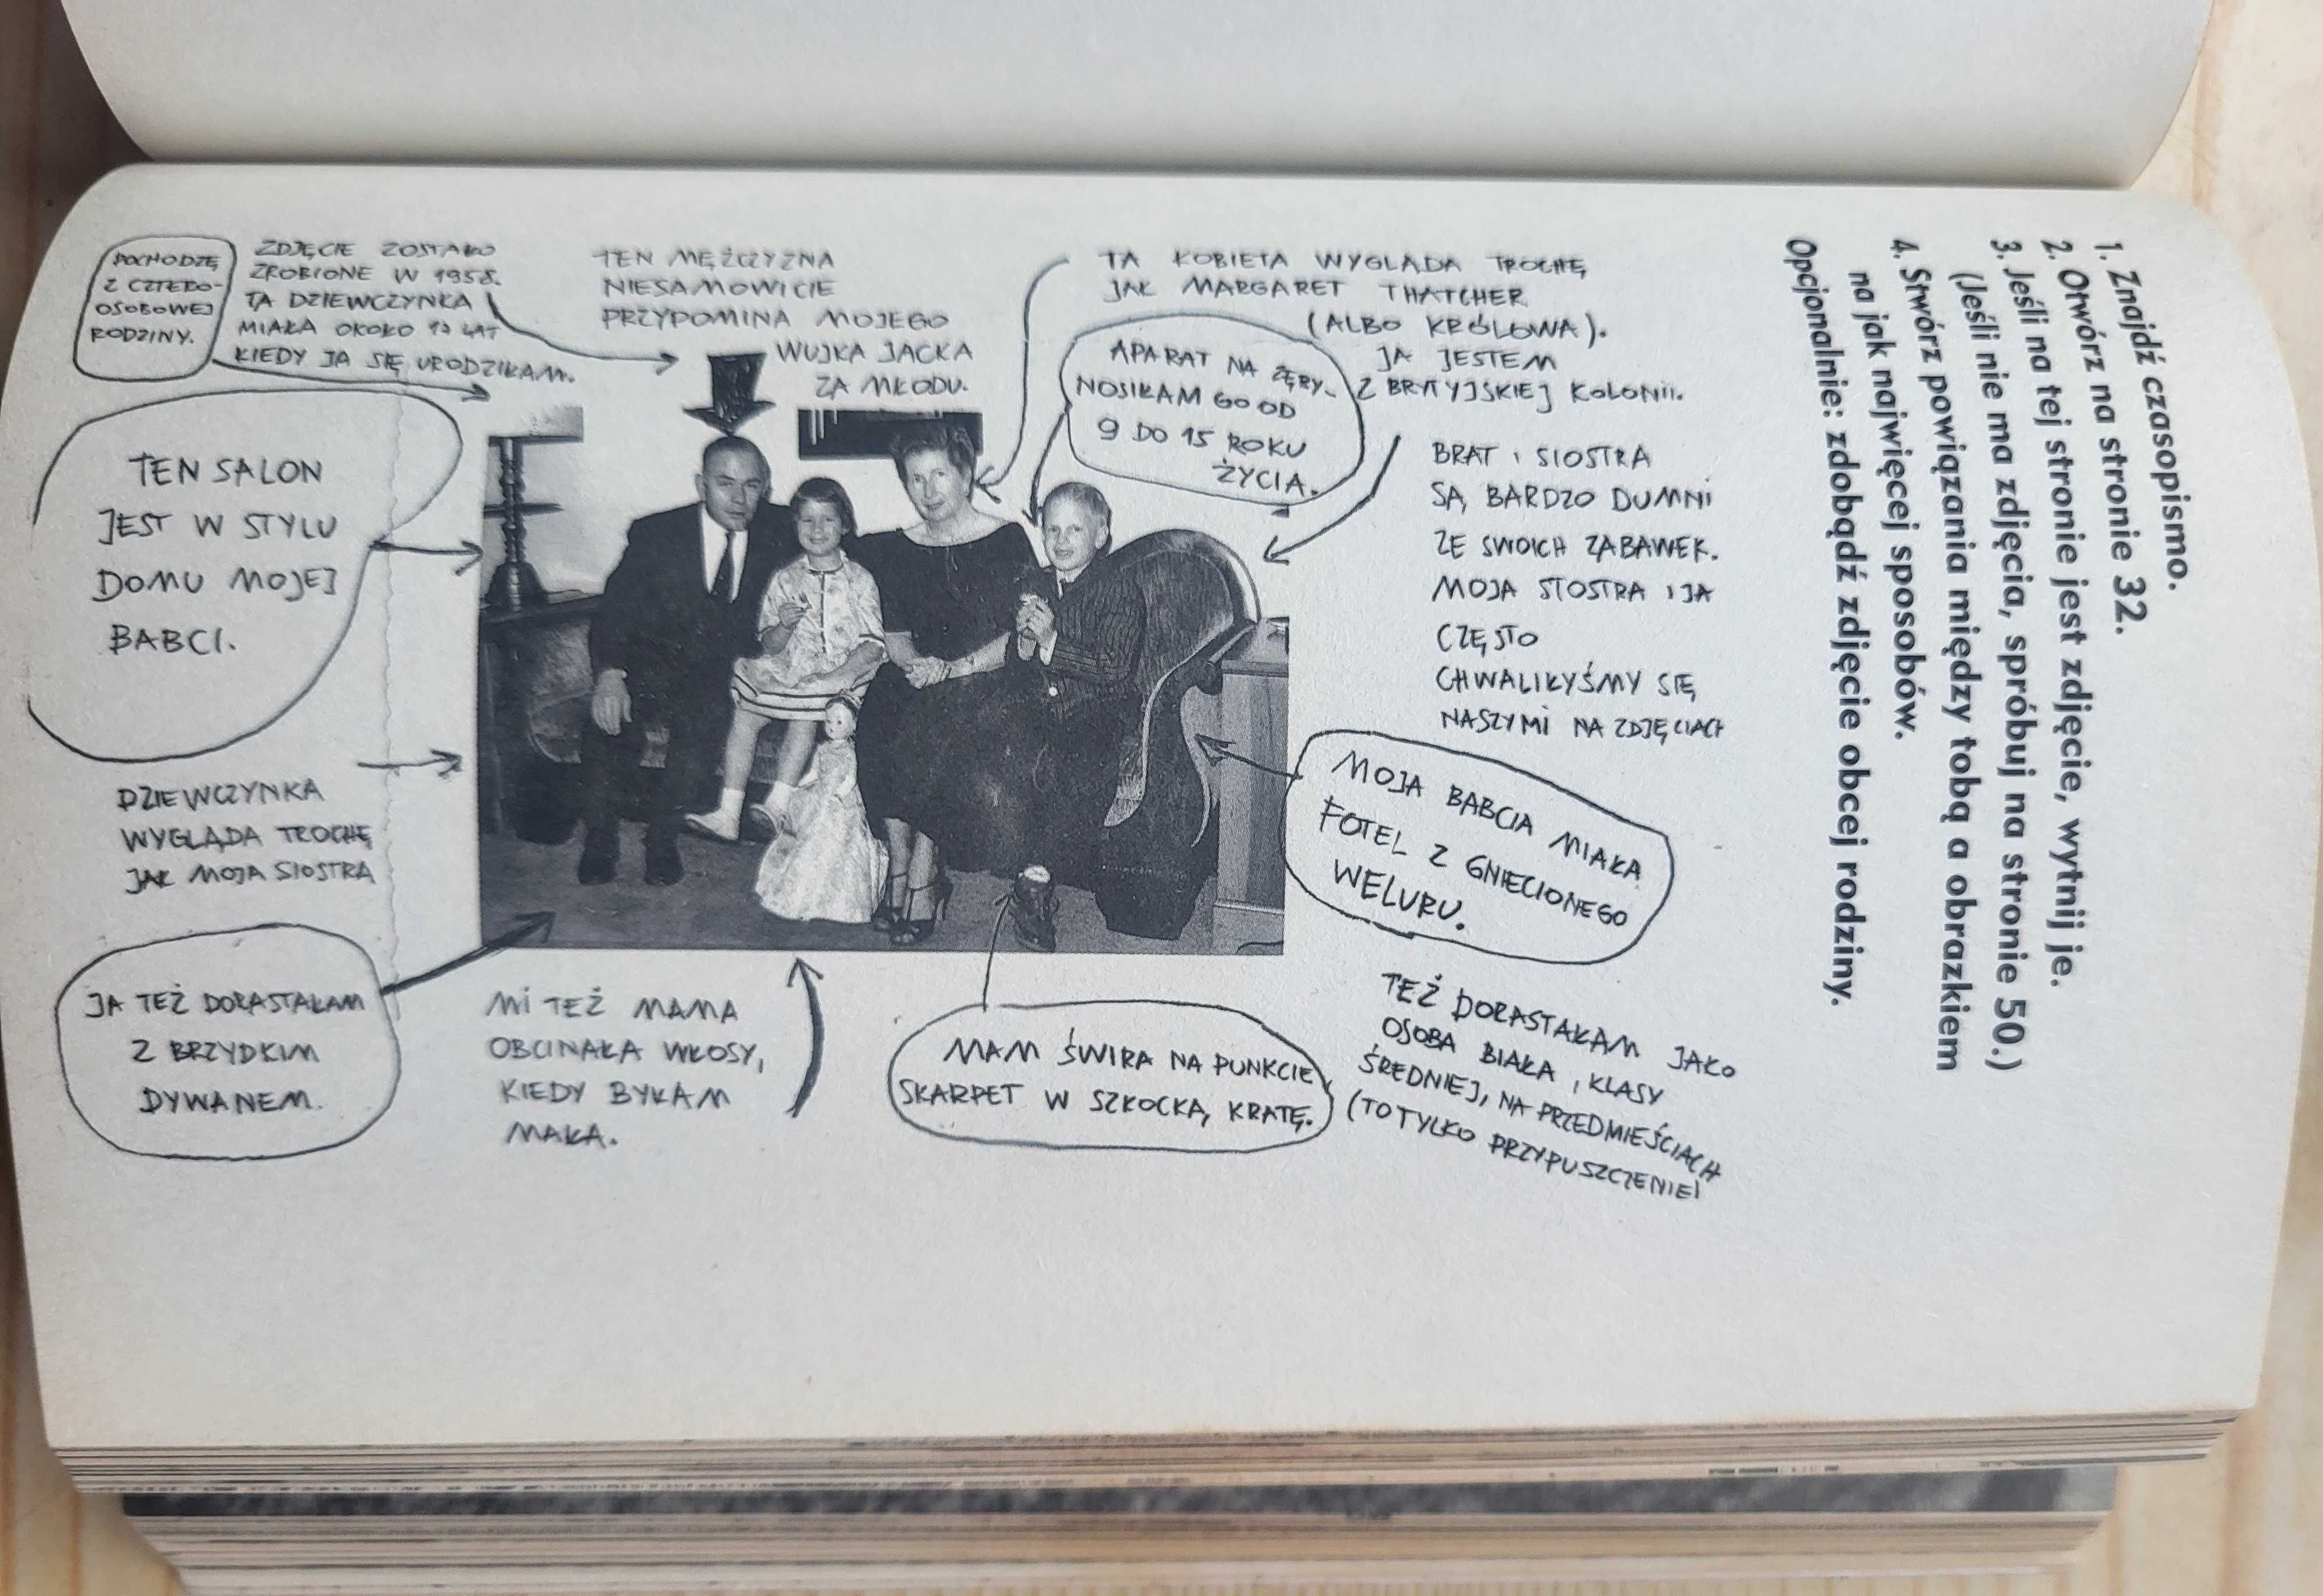 POCHODZĘ
Z CZTERO-
OSOBOWEJ
RODZINY.
ZDJĘCIE ZOSTAŁO
ZROBIONE W 1958.
TA DZIEWCZYNKA
MIAŁA OKOŁO 12 LAT
KIEDY JA SIĘ URODZIŁAM.
TEN MĘŻCZYZNA
NIESAMOWICIE
PRZYPOMINA MOJEGO
WUJKA JACKA
ZA MŁODU.
TA KOBIETA WYGLĄDA TROCHĘ
JAK MARGARET THATCHER
(ALBO KRÓLOWA).
JA JESTEM
Z BRYTYJSKIEJ KOLONII.
APARAT NA ZĘBY.
NOSIŁAM GO OD
9 DO 15 ROKU
ŻYCIA.
TEN SALON
JEST W STYLU
DOMU MOJEJ
BABCI.
BRAT I SIOSTRA
SĄ BARDZO DUMNI
ZE SWOICH ZABAWEK.
MOJA SIOSTRA I JA
CZĘSTO
CHWALIŁYŚMY SIĘ
NASZYMI NA ZDJĘCIACH
DZIEWCZYNKA
WYGLĄDA TROCHĘ
JAK MOJA SIOSTRA
MOJA BABCIA MIAŁA
FOTEL Z GNIECIONEGO
WELURU.
JA TEŻ DORASTAŁAM
Z BRZYDKIM
DYWANEM.
MI TEŻ MAMA
OBCINAŁA WŁOSY,
KIEDY BYŁAM
MAŁA.
MAM ŚWIRA NA PUNKCIE
SKARPET W SZKOCKĄ KRATĘ.
TEŻ DORASTAŁAM JAKO
OSOBA BIAŁA, KLASY
ŚREDNIEJ, NA PRZEDMIEŚCIACH
(TO TYLKO PRZYPUSZCZENIE)
1. Znajdź czasopismo.
2. Otwórz na stronie 32.
3. Jeśli na tej stronie jest zdjęcie, wytnij je.
(Jeśli nie ma zdjęcia, spróbuj na stronie 50.)
4. Stwórz powiązania między tobą a obrazkiem
na jak najwięcej sposobów.
Opcjonalnie: zdobądź zdjęcie obcej rodziny.